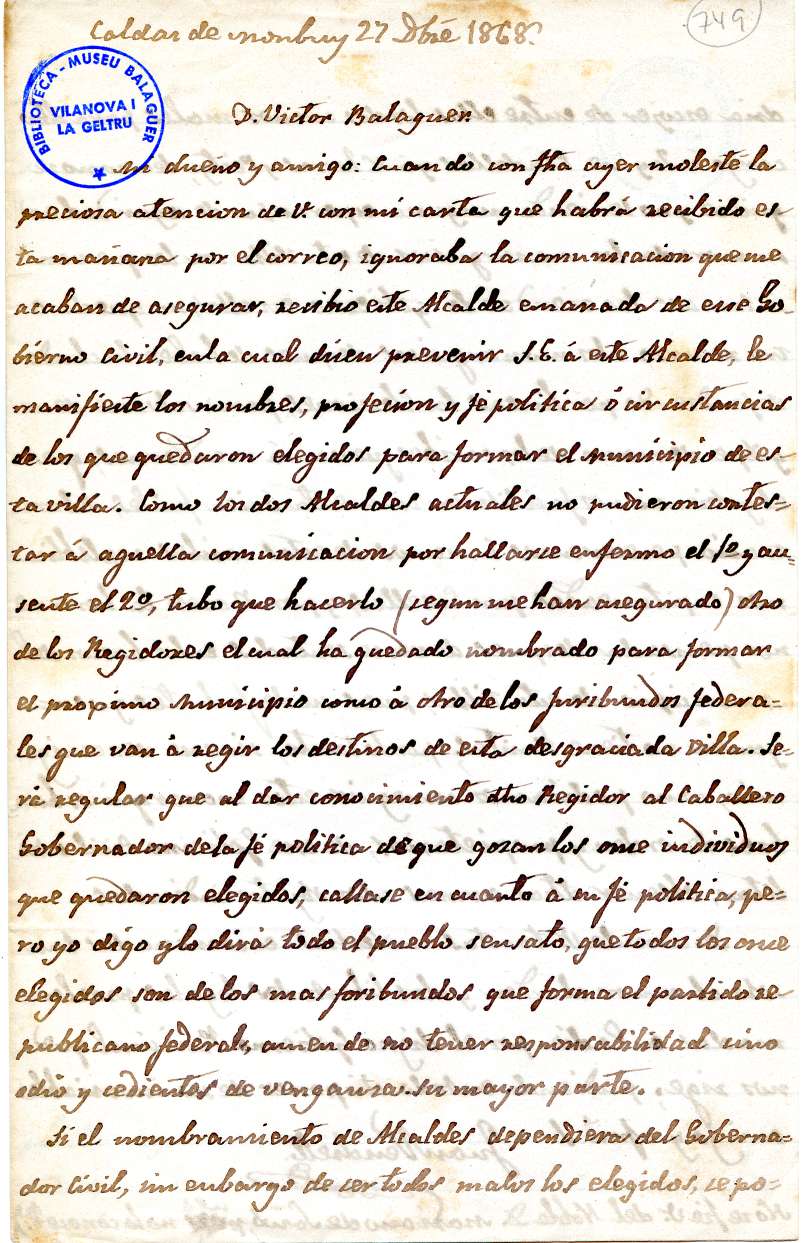 749
Caldas de monbuy 27 Dbre 1868.
BIBLIOTECA - MUSEU BALAGUER
VILANOVA I
LA GELTRU
D. Victor Balaguer.
Mi dueño y amigo: Cuando con fha ayer moleste la
preciosa atencion de V. con mi carta que habrá recibido es-
ta mañana por el correo, ignoraba la comunicacion que me
acaban de asegurar, recibio este Alcalde emanada de ese Go-
bierno Civil, en la cual dicen prevenir S. E. á este Alcalde, le
manifieste los nombres, profecion y fé politica ó circustancias
de los que quedaron elegidos para formar el Municipio de es-
ta villa. Como los dos Alcaldes actuales no pudieron contes-
tar á aquella comunicacion por hallarse enfermo el 1º y au-
sente el 2º, tubo que hacerlo (segun me han asegurado) otro
de los Regidores el cual ha quedado nombrado para formar
el proximo Municipio como á otro de los furibundos federa-
les que van á regir los destinos de esta desgraciada villa. Se-
rá regular que al dar conocimiento dho Regidor al Caballero
Gobernador de la fé politica de que gozan los once individuos
que quedaron elegidos, callase en cuanto á su fé politica, pe-
ro yo digo y lo dirá todo el pueblo sensato, que todos los once
elegidos son de los mas foribundos que forma el partido re-
publicano federal, amen de no tener responsabilidad sino
odio y cedientos de venganza su mayor parte.
Si el nombramiento de Alcaldes dependiera del Goberna-
dor Civil, sin enbargo de ser todos malos los elegidos, se po-